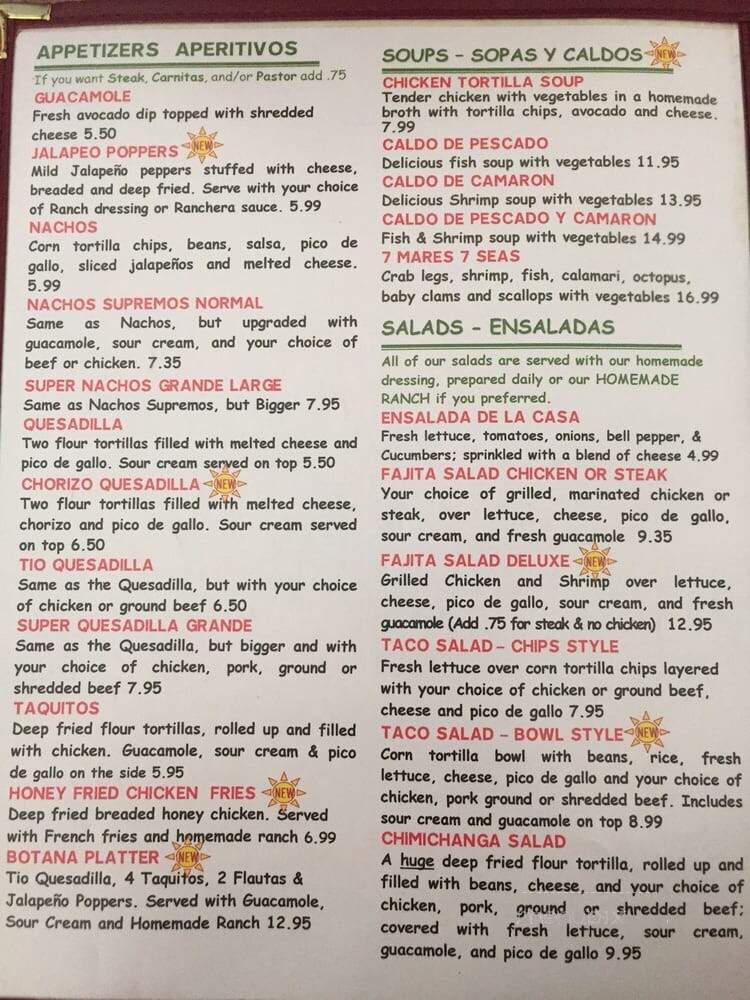 APPETIZERS APERITIVOS
If you want Steak, Carnitas, and/or Pastor add .75
GUACAMOLE
Fresh avocado dip topped with shredded
cheese 5.50
JALAPEO POPPERS NEW
Mild Jalapeño peppers stuffed with cheese,
breaded and deep fried. Serve with your choice
of Ranch dressing or Ranchera sauce. 5.99
NACHOS
Corn tortilla chips, beans, salsa, pico de
gallo, sliced jalapeños and melted cheese.
5.99
NACHOS SUPREMOS NORMAL
Same as Nachos, but upgraded with
guacamole, sour cream, and your choice of
beef or chicken. 7.35
SUPER NACHOS GRANDE LARGE
Same as Nachos Supremos, but Bigger 7.95
QUESADILLA
Two flour tortillas filled with melted cheese and
pico de gallo. Sour cream served on top 5.50
CHORIZO QUESADILLA NEW
Two flour tortillas filled with melted cheese,
chorizo and pico de gallo. Sour cream served
on top 6.50
TIO QUESADILLA
Same as the Quesadilla, but with your choice
of chicken or ground beef 6.50
SUPER QUESADILLA GRANDE
Same as the Quesadilla, but bigger and with
your choice of chicken, pork, ground or
shredded beef 7.95
TAQUITOS
Deep fried flour tortillas, rolled up and filled
with chicken. Guacamole, sour cream & pico
de gallo on the side 5.95
HONEY FRIED CHICKEN FRIES NEW
Deep fried breaded honey chicken. Served
with French fries and homemade ranch 6.99
BOTANA PLATTER NEW
Tio Quesadilla, 4 Taquitos, 2 Flautas &
Jalapeño Poppers. Served with Guacamole,
Sour Cream and Homemade Ranch 12.95
SOUPS - SOPAS Y CALDOS NEW
CHICKEN TORTILLA SOUP
Tender chicken with vegetables in a homemade
broth with tortilla chips, avocado and cheese.
7.99
CALDO DE PESCADO
Delicious fish soup with vegetables 11.95
CALDO DE CAMARON
Delicious Shrimp soup with vegetables 13.95
CALDO DE PESCADO Y CAMARON
Fish & Shrimp soup with vegetables 14.99
7 MARES 7 SEAS
Crab legs, shrimp, fish, calamari, octopus,
baby clams and scallops with vegetables 16.99
SALADS - ENSALADAS
All of our salads are served with our homemade
dressing, prepared daily or our HOMEMADE
RANCH if you preferred.
ENSALADA DE LA CASA
Fresh lettuce, tomatoes, onions, bell pepper, &
Cucumbers; sprinkled with a blend of cheese 4.99
FAJITA SALAD CHICKEN OR STEAK
Your choice of grilled, marinated chicken or
steak, over lettuce, cheese, pico de gallo,
sour cream, and fresh guacamole 9.35
FAJITA SALAD DELUXE NEW
Grilled Chicken and Shrimp over lettuce,
cheese, pico de gallo, sour cream, and fresh
guacamole (Add .75 for steak & no chicken) 12.95
TACO SALAD - CHIPS STYLE
Fresh lettuce over corn tortilla chips layered
with your choice of chicken or ground beef,
cheese and pico de gallo 7.95
TACO SALAD - BOWL STYLE NEW
Corn tortilla bowl with beans, rice, fresh
lettuce, cheese, pico de gallo and your choice of
chicken, pork ground or shredded beef. Includes
sour cream and guacamole on top 8.99
CHIMICHANGA SALAD
A huge deep fried flour tortilla, rolled up and
filled with beans, cheese, and your choice of
chicken, pork, ground or shredded beef;
covered with fresh lettuce, sour cream,
guacamole, and pico de gallo 9.95